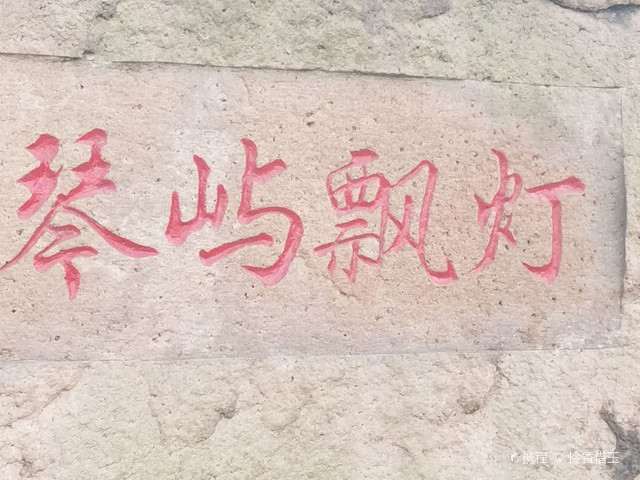 琴屿飘灯
携程 © 怜香惜玉